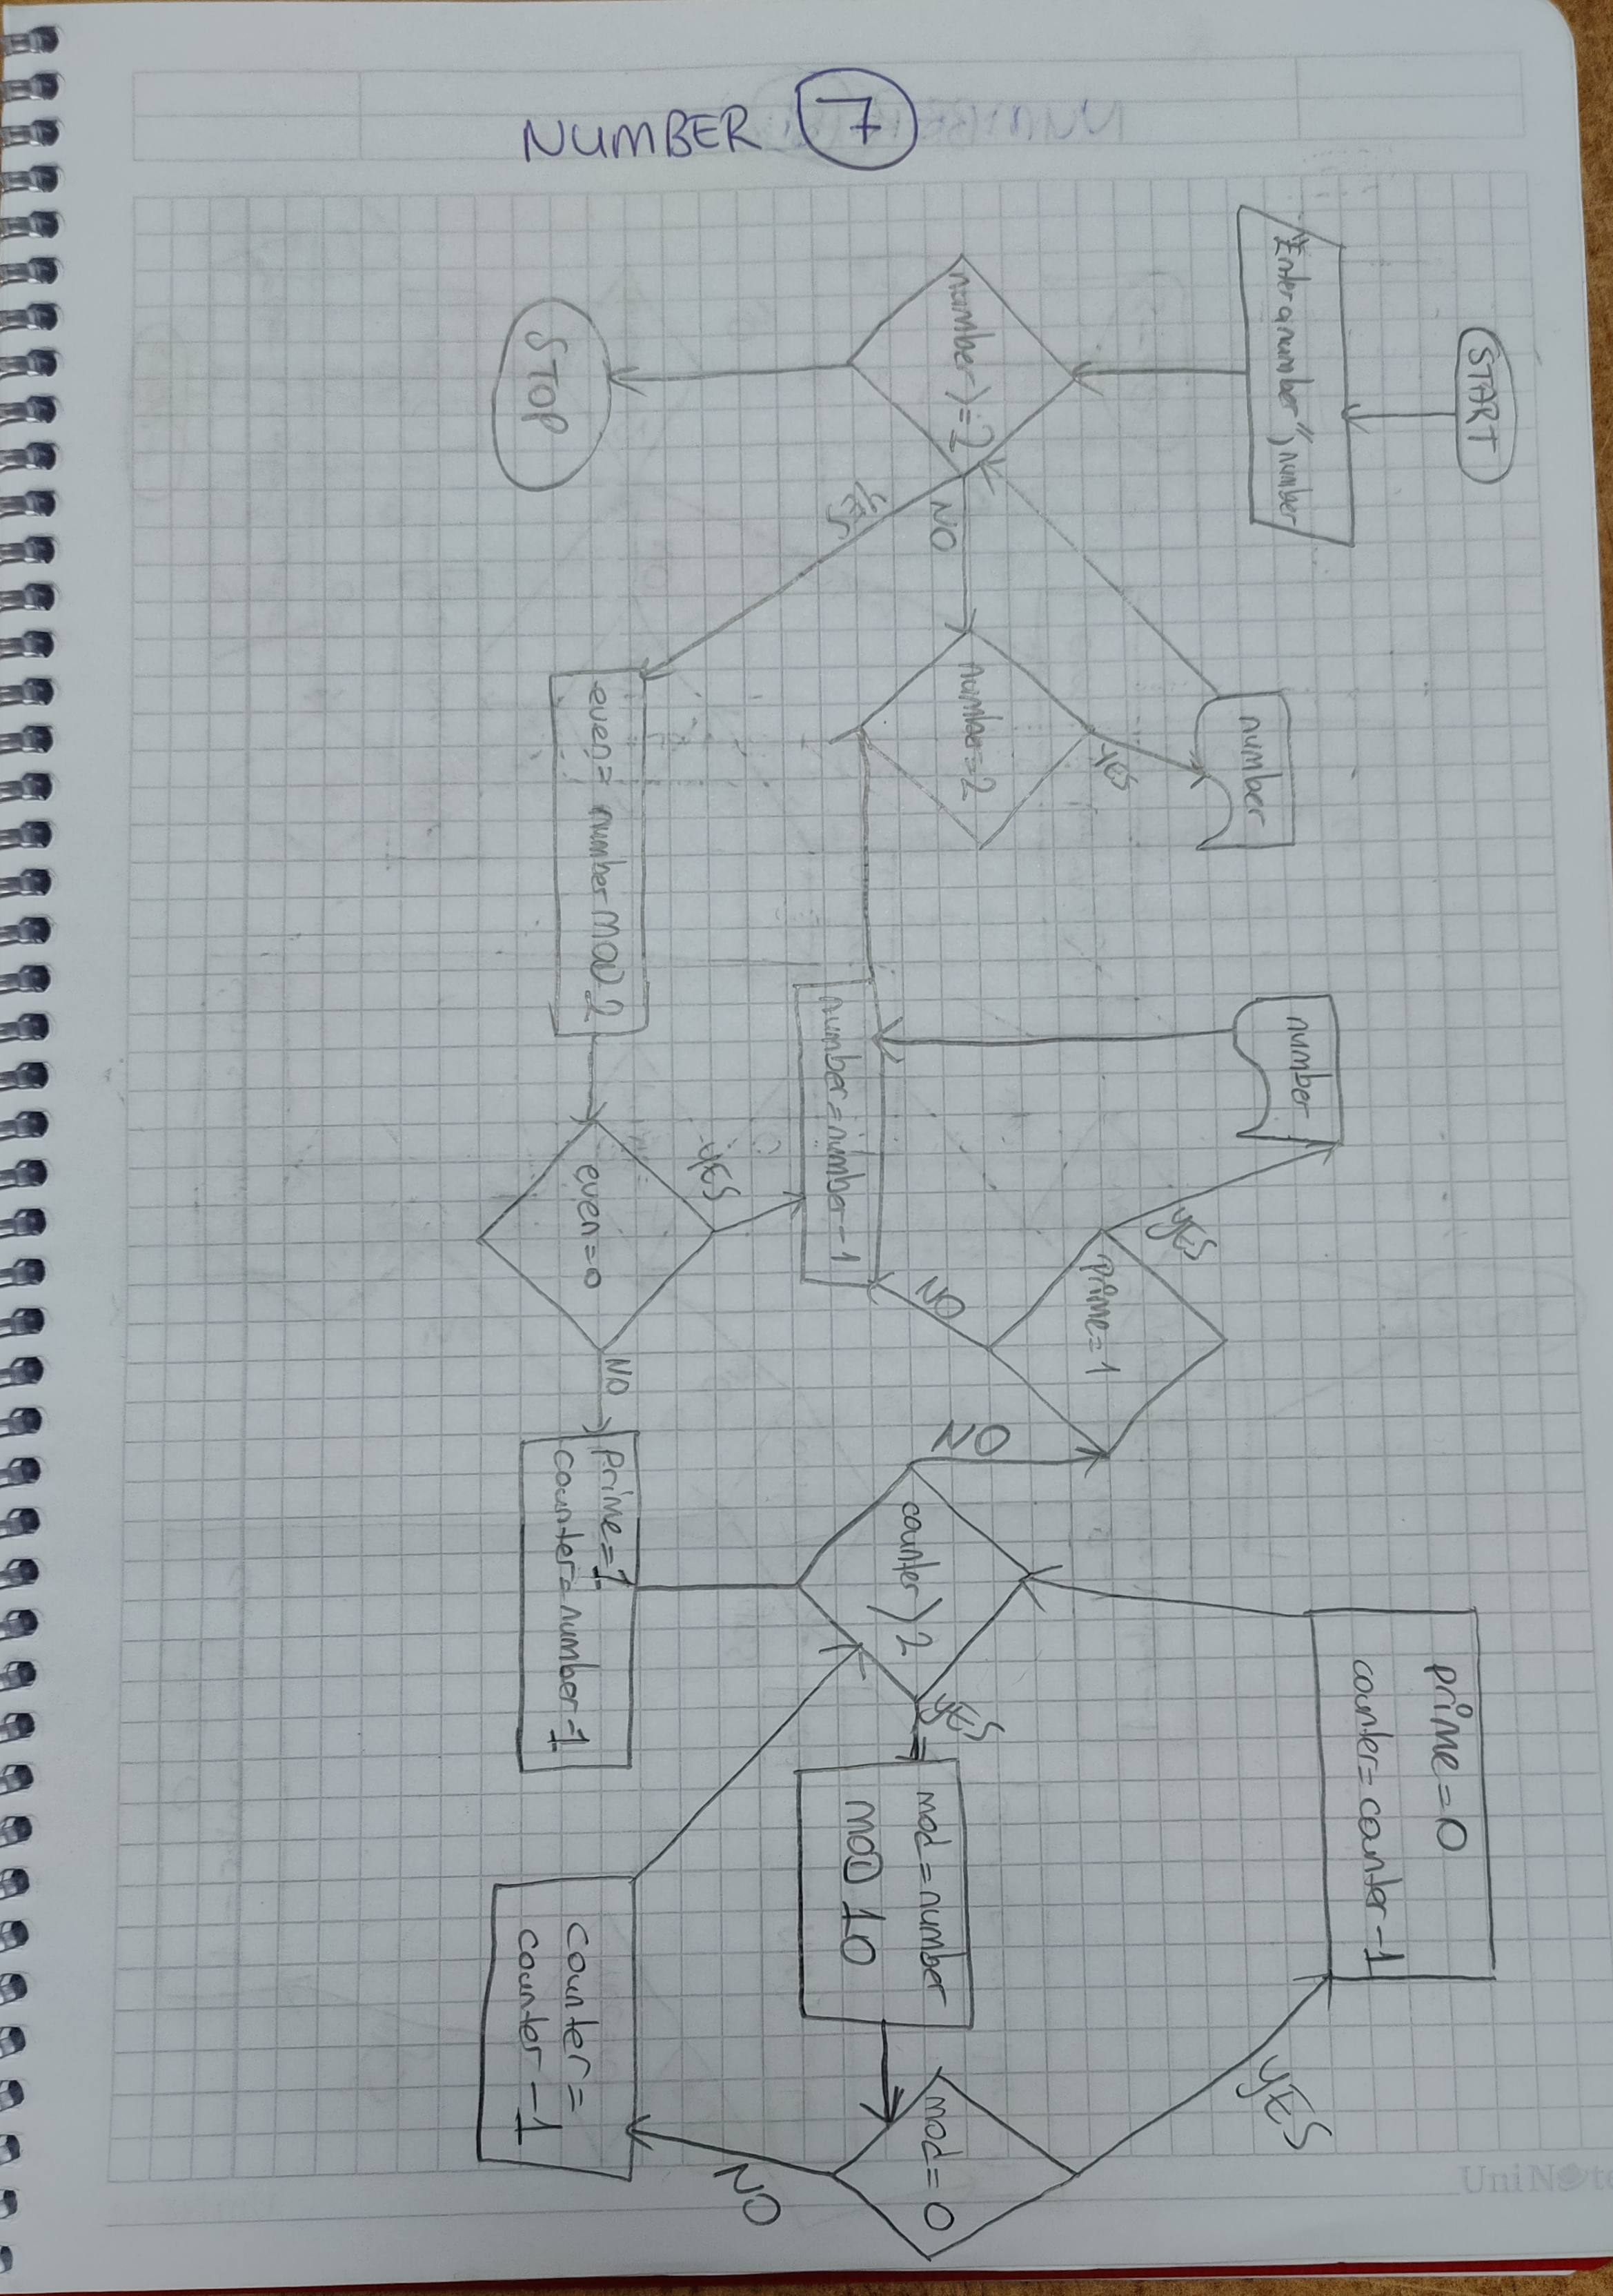 NUMBER 7
START
"Enter a number", number
number>=2
STOP
NO
YES
number=2
YES
number
even= number MOD 2
even=0
YES
NO
number=number-1
number
YES
prime=1
NO
Prime=1
counter=number-1
NO
counter>2
YES
mod=number
MOD 10
mod=0
YES
prime=0
counter=counter-1
NO
counter=
counter-1
UniNote